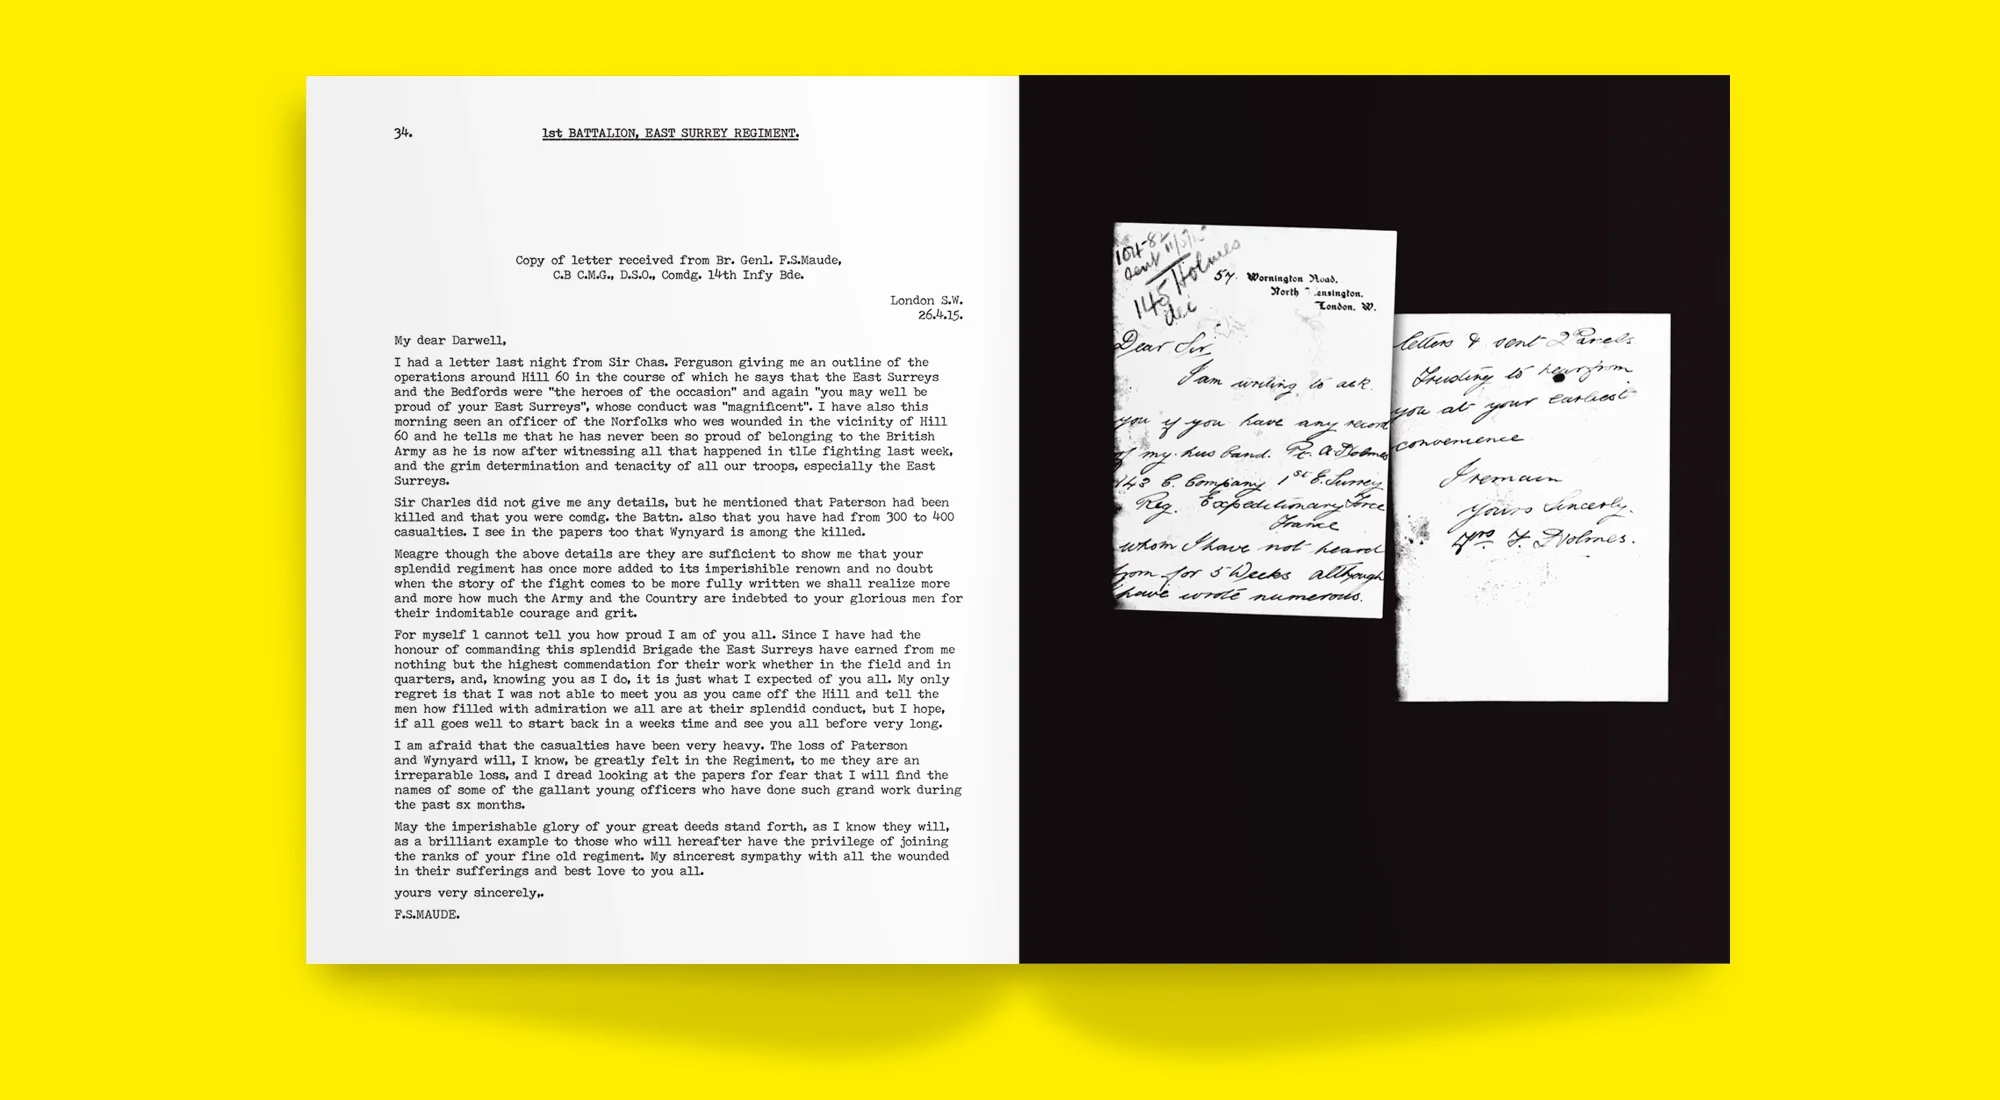 34.
1st BATTALION, EAST SURREY REGIMENT.
Copy of letter received from Br. Genl. F.S.Maude,
C.B C.M.G., D.S.O., Comdg. 14th Infy Bde.
London S.W.
26.4.15.
My dear Darwell,
I had a letter last night from Sir Chas. Ferguson giving me an outline of the
operations around Hill 60 in the course of which he says that the East Surreys
and the Bedfords were "the heroes of the occasion" and again "you may well be
proud of your East Surreys", whose conduct was "magnificent". I have also this
morning seen an officer of the Norfolks who wes wounded in the vicinity of Hill
60 and he tells me that he has never been so proud of belonging to the British
Army as he is now after witnessing all that happened in tlLe fighting last week,
and the grim determination and tenacity of all our troops, especially the East
Surreys.
Sir Charles did not give me any details, but he mentioned that Paterson had been
killed and that you were comdg. the Battn. also that you have had from 300 to 400
casualties. I see in the papers too that Wynyard is among the killed.
Meagre though the above details are they are sufficient to show me that your
splendid regiment has once more added to its imperishible renown and no doubt
when the story of the fight comes to be more fully written we shall realize more
and more how much the Army and the Country are indebted to your glorious men for
their indomitable courage and grit.
For myself l cannot tell you how proud I am of you all. Since I have had the
honour of commanding this splendid Brigade the East Surreys have earned from me
nothing but the highest commendation for their work whether in the field and in
quarters, and, knowing you as I do, it is just what I expected of you all. My only
regret is that I was not able to meet you as you came off the Hill and tell the
men how filled with admiration we all are at their splendid conduct, but I hope,
if all goes well to start back in a weeks time and see you all before very long.
I am afraid that the casualties have been very heavy. The loss of Paterson
and Wynyard will, I know, be greatly felt in the Regiment, to me they are an
irreparable loss, and I dread looking at the papers for fear that I will find the
names of some of the gallant young officers who have done such grand work during
the past sx months.
May the imperishable glory of your great deeds stand forth, as I know they will,
as a brilliant example to those who will hereafter have the privilege of joining
the ranks of your fine old regiment. My sincerest sympathy with all the wounded
in their sufferings and best love to you all.
yours very sincerely,.
F.S.MAUDE.
sent
145 Holmes
57. Wornington Road,
North ensington,
London. W.
Dear Sir
I am writing to ask
you if you have any record
of my husband. Pt. A Holmes
143 C. Company 1st E. Surrey
Reg. Expeditionary Force
France
whom I have not heard
from for 5 Weeks although
I have wrote numerous.
letters & sent 2 Parcels
Trusting to hear from
you at your earliest
convenience
I remain
yours Sincerly.
Mrs F. Holmes.